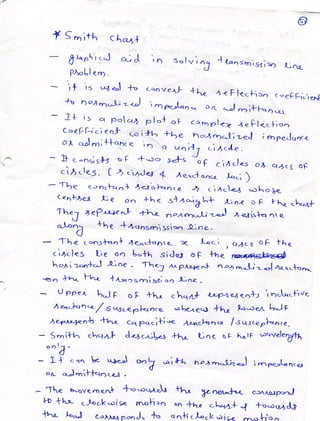 * Smith Chart :
- graphical aid in solving transmission line
problem.
- it is used to convert the reflection coefficient
to normalized impedance or admittance.
- It is a polar plot of complex reflection
coefficient with the normalized impedance
or admittance in a unity circle.
- It consists of two sets of circles or arcs of
circles. ( r circles & reactance loci )
- The constant resistance r circles whose
centres lie on the straight line of the chart
They represent the normalized resistance
along the transmission line.
- The constant reactance x loci , arcs of the
circles lie on both sides of the
horizontal line. They represent normalized reactance
on the transmission line.
- Upper half of the chart represents inductive
reactance / susceptance whereas the lower half
represents the capacitive reactance / susceptance.
- Smith chart describes the line of half wavelength
only.
- It can be used only with normalized impedances
or admittances.
- The movement towards the generator correspond
to the clockwise motion on the chart & towards
the load corresponds to anticlockwise motion